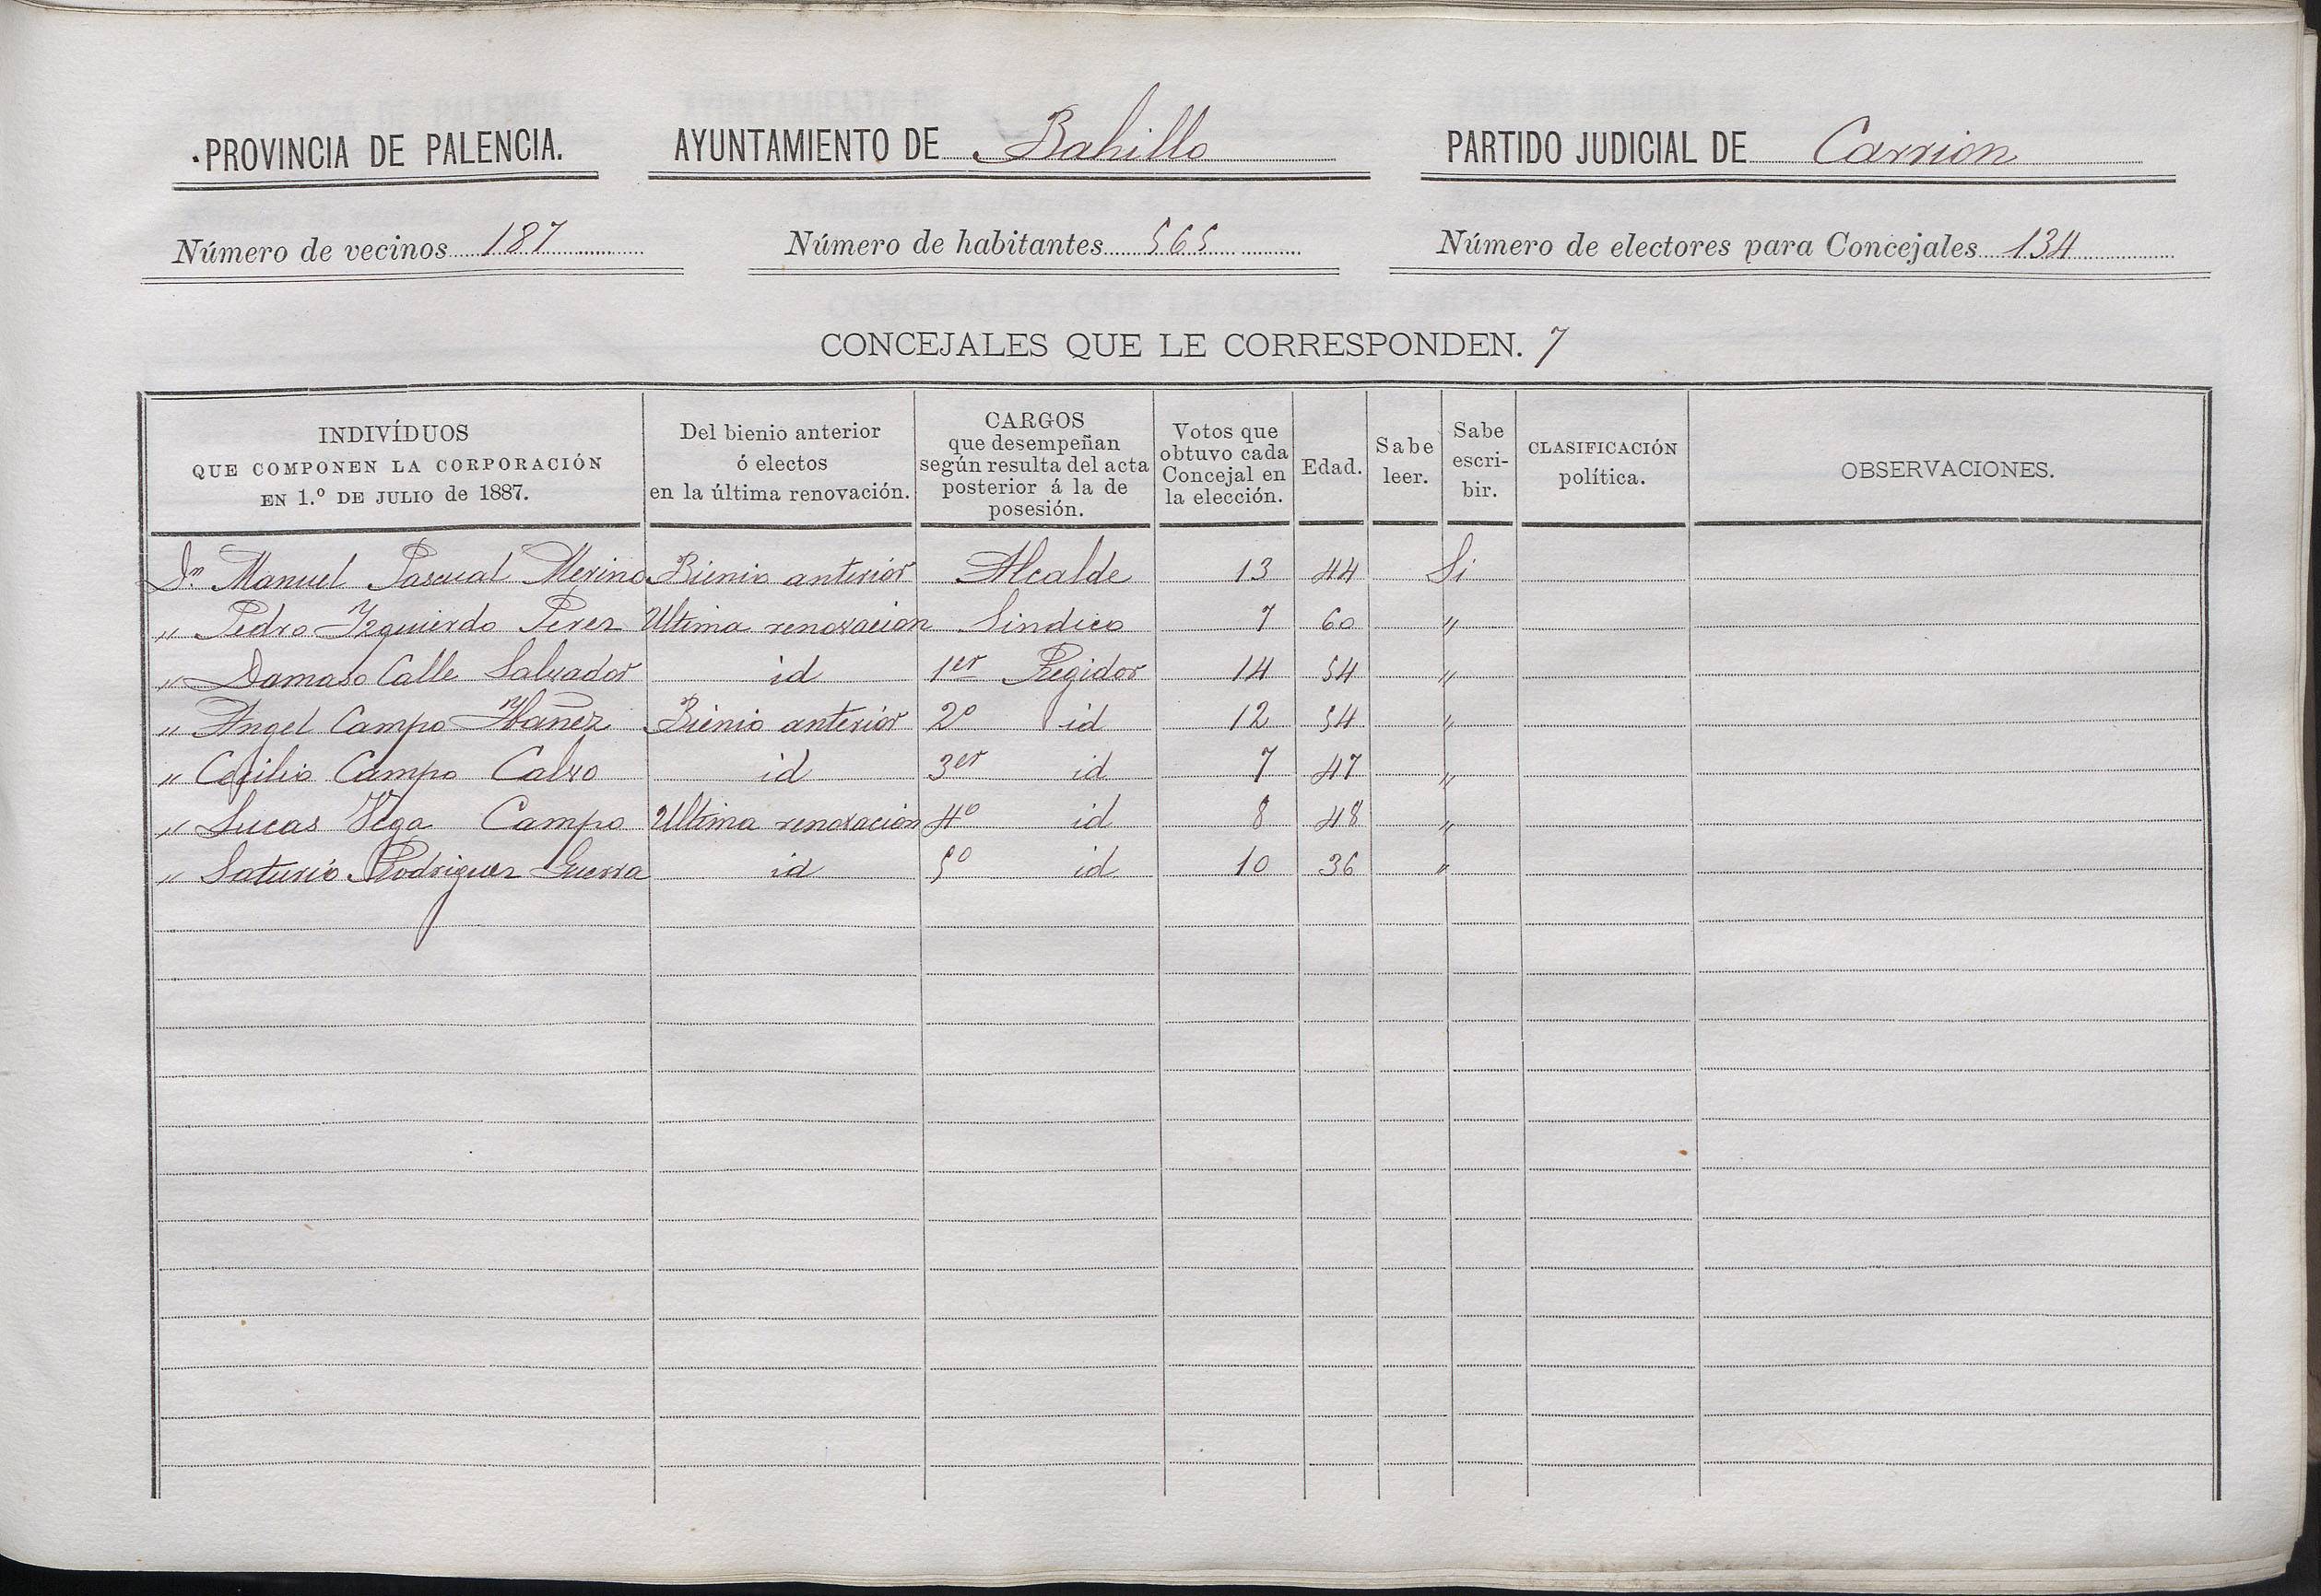 PROVINCIA DE PALENCIA. AYUNTAMIENTO DE Bahillo PARTIDO JUDICIAL DE Carrion
Número de vecinos 187 Número de habitantes 565 Número de electores para Concejales 134
CONCEJALES QUE LE CORRESPONDEN. 7
INDIVÍDUOS
QUE COMPONEN LA CORPORACIÓN
EN 1.º DE JULIO de 1887.
Del bienio anterior
ó electos
en la última renovación.
CARGOS
que desempeñan
según resulta del acta
posterior á la de
posesión.
Votos que
obtuvo cada
Concejal en
la elección.
Edad.
Sabe
leer.
Sabe
escri-
bir.
CLASIFICACIÓN
política.
OBSERVACIONES.
Dn. Manuel Pascual Merino Bienio anterior Alcalde 13 44 Si
" Pedro Izquierdo Perez Ultima renovacion Sindico 7 60 "
" Damaso Calle Salvador id 1er Regidor 14 54 "
" Angel Campo Ibañez Bienio anterior 2º id 12 54 "
" Cecilio Campo Calvo id 3er id 7 47 "
" Lucas Vega Campo Ultima renovacion 4º id 8 48 "
" Saturio Rodriguez Guerra id 5º id 10 36 "